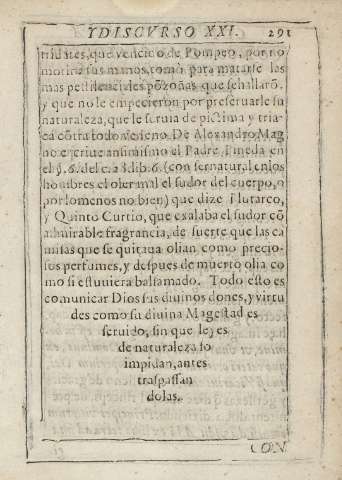 YDISCVRSO XXI. 291
tridates, que vencido de Pompeo, por no
morir a sus manos, tomò para matarse las
mas pestilenciales põzoñas que se hallarõ,
y que no le empecieron por preseruarle su
naturaleza, que le seruia de pictima y tria-
ca cõtra todo veneno. De Alexandro Mag
no escriue ansimismo el Padre Pineda en
el §. 6. del c. 28. lib. 6. (con ser natural en los
hombres el oler mal el sudor del cuerpo, o
por lo menos no bien) que dize Plutarco,
y Quinto Curtio, que exalaba el sudor cõ
admirable fragrancia, de suerte que las ca
misas que se quitaua olian como precio-
sos perfumes, y despues de muerto olia co
mo si estuuiera balsamado. Todo esto es
comunicar Dios sus diuinos dones, y virtu
des como su diuina Magestad es
seruido, sin que leyes
de naturaleza lo
impidan, antes
traspassan
dolas.
CON.